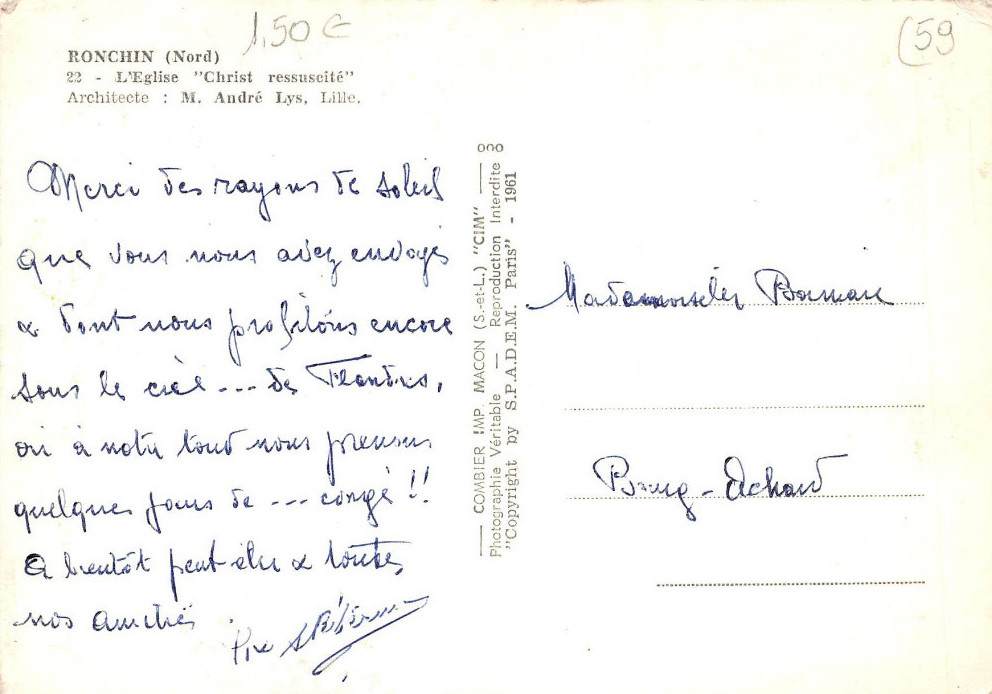 1,50 €
(59
RONCHIN (Nord)
22 - L'Eglise "Christ ressuscité"
Architecte : M. André Lys, Lille.
Merci des rayons de soleil
que vous nous avez envoyés
& dont nous profitons encore
sous le ciel --- des Flandres,
où à notre tour nous prenons
quelques jours de --- congé !!
A bientôt peut-être & toutes
nos amitiés
ooo
COMBIER IMP. MACON (S.-et-L.) "CIM"
Photographie Véritable — Reproduction Interdite
"Copyright by S.P.A.D.E.M. Paris" - 1961
Mademoiselle
Bourg-Achard